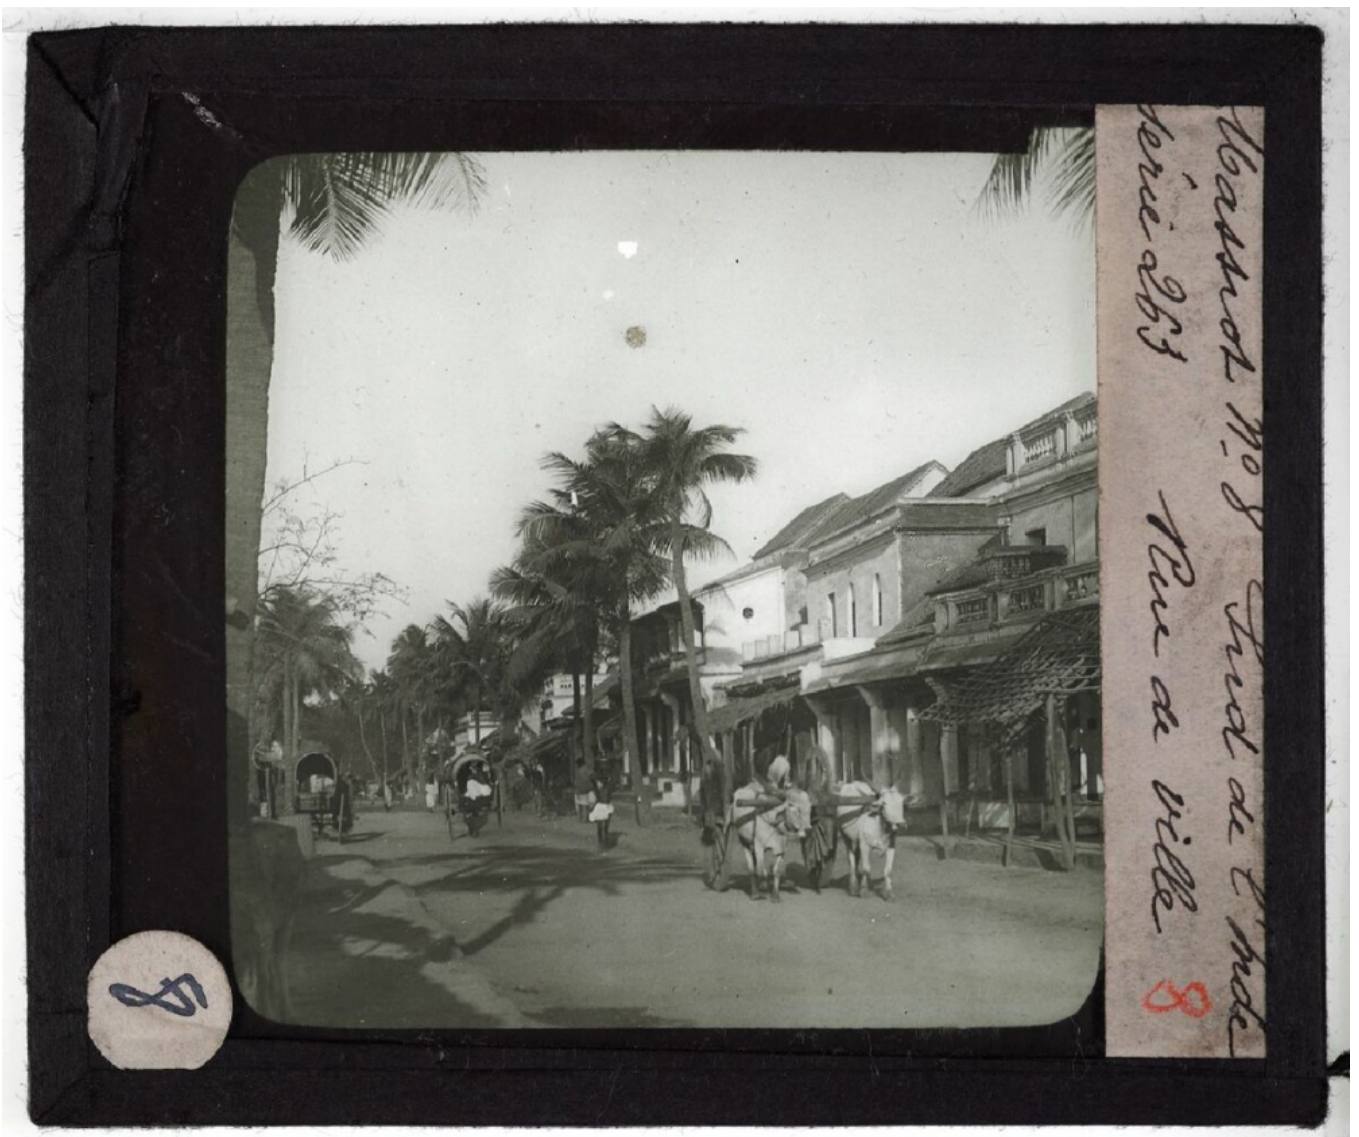 Massiot Nº 8 Sud de l'Inde
série 263 Rue de ville 8
8